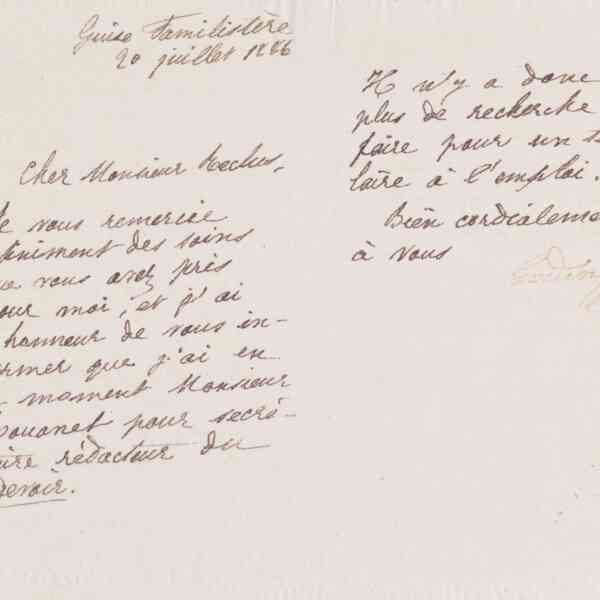 Guise Familistère
20 juillet 1886
Cher Monsieur Reclus,
Je vous remercie
finiment des soins
que vous avez pris
pour moi, et j'ai
honneur de vous in-
ormer que j'ai en
moment Monsieur
pour secré-
aire rédacteur du
Devoir.
Il n'y a donc
plus de recherche
faire pour un
laire à l'emploi.
Bien cordialeme
à vous
Godin